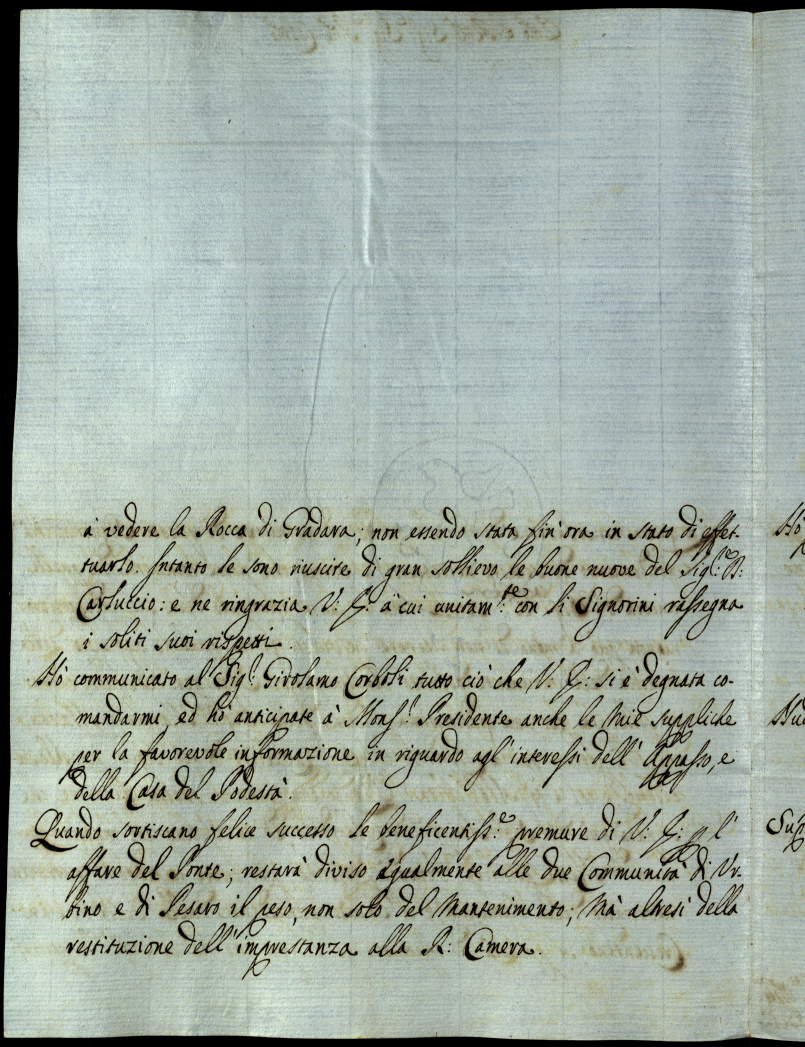 à vedere la Rocca di Gradara; non essendo stata fin'ora in stato di effet-
tuarlo. Intanto le sono riuscite di gran sollievo le buone nuove del Sig.re D:
Carluccio: e ne ringrazia V: E: a cui unitam.te con li Signorini rassegna
i soliti suoi rispetti.
Hò communicato al Sig.r Girolamo Corboli tutto ciò che V: E: si è degnata co-
mandarmi, ed hò anticipate à Mons.r Presidente anche le mie suppliche
per la favorevole informazione in riguardo agl'interessi dell'Appasso, e
della Casa del Podestà.
Quando sortiscano felice successo le beneficentiss.e premure di V: E: p l'
affare del Ponte; restarà diviso egualmente alle due Communità di Ur-
bino e di Pesaro il peso, non solo del mantenimento; mà altresì della
restituzione dell'imprestanza alla R: Camera.
Hò